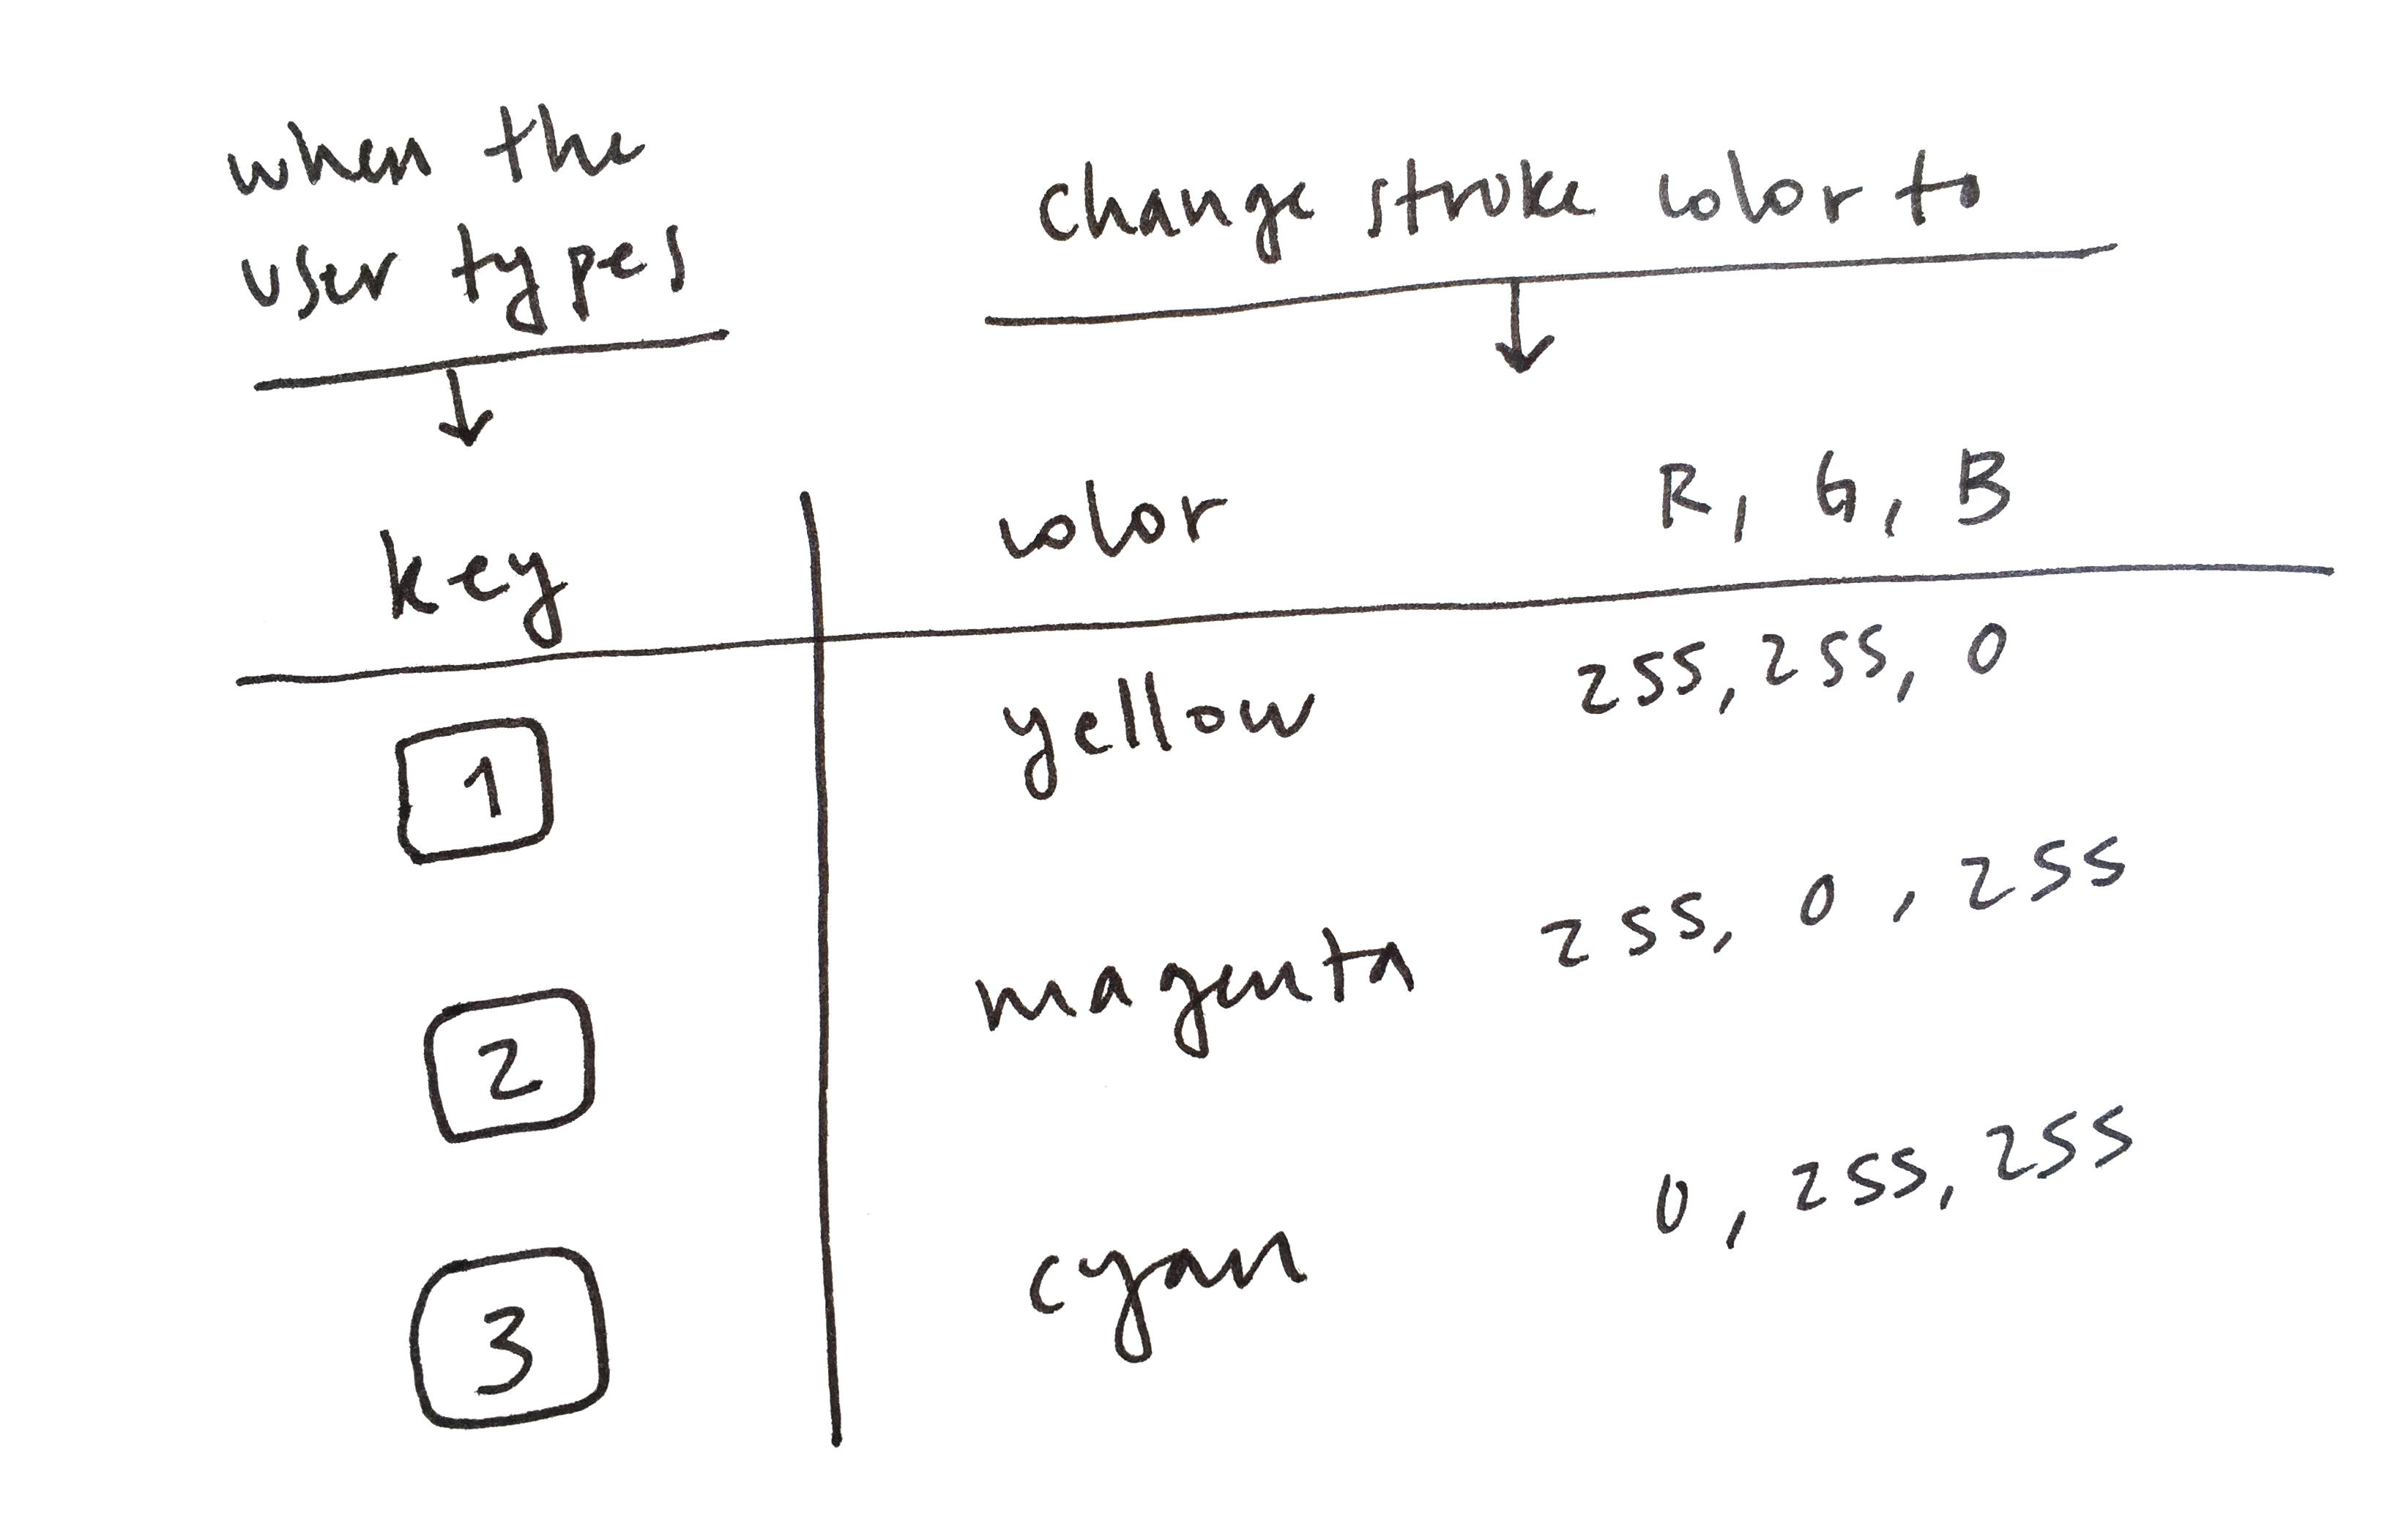 when the
user types
change stroke color to
key
color
R, G, B
1
yellow
255, 255, 0
2
magenta
255, 0, 255
3
cyan
0, 255, 255